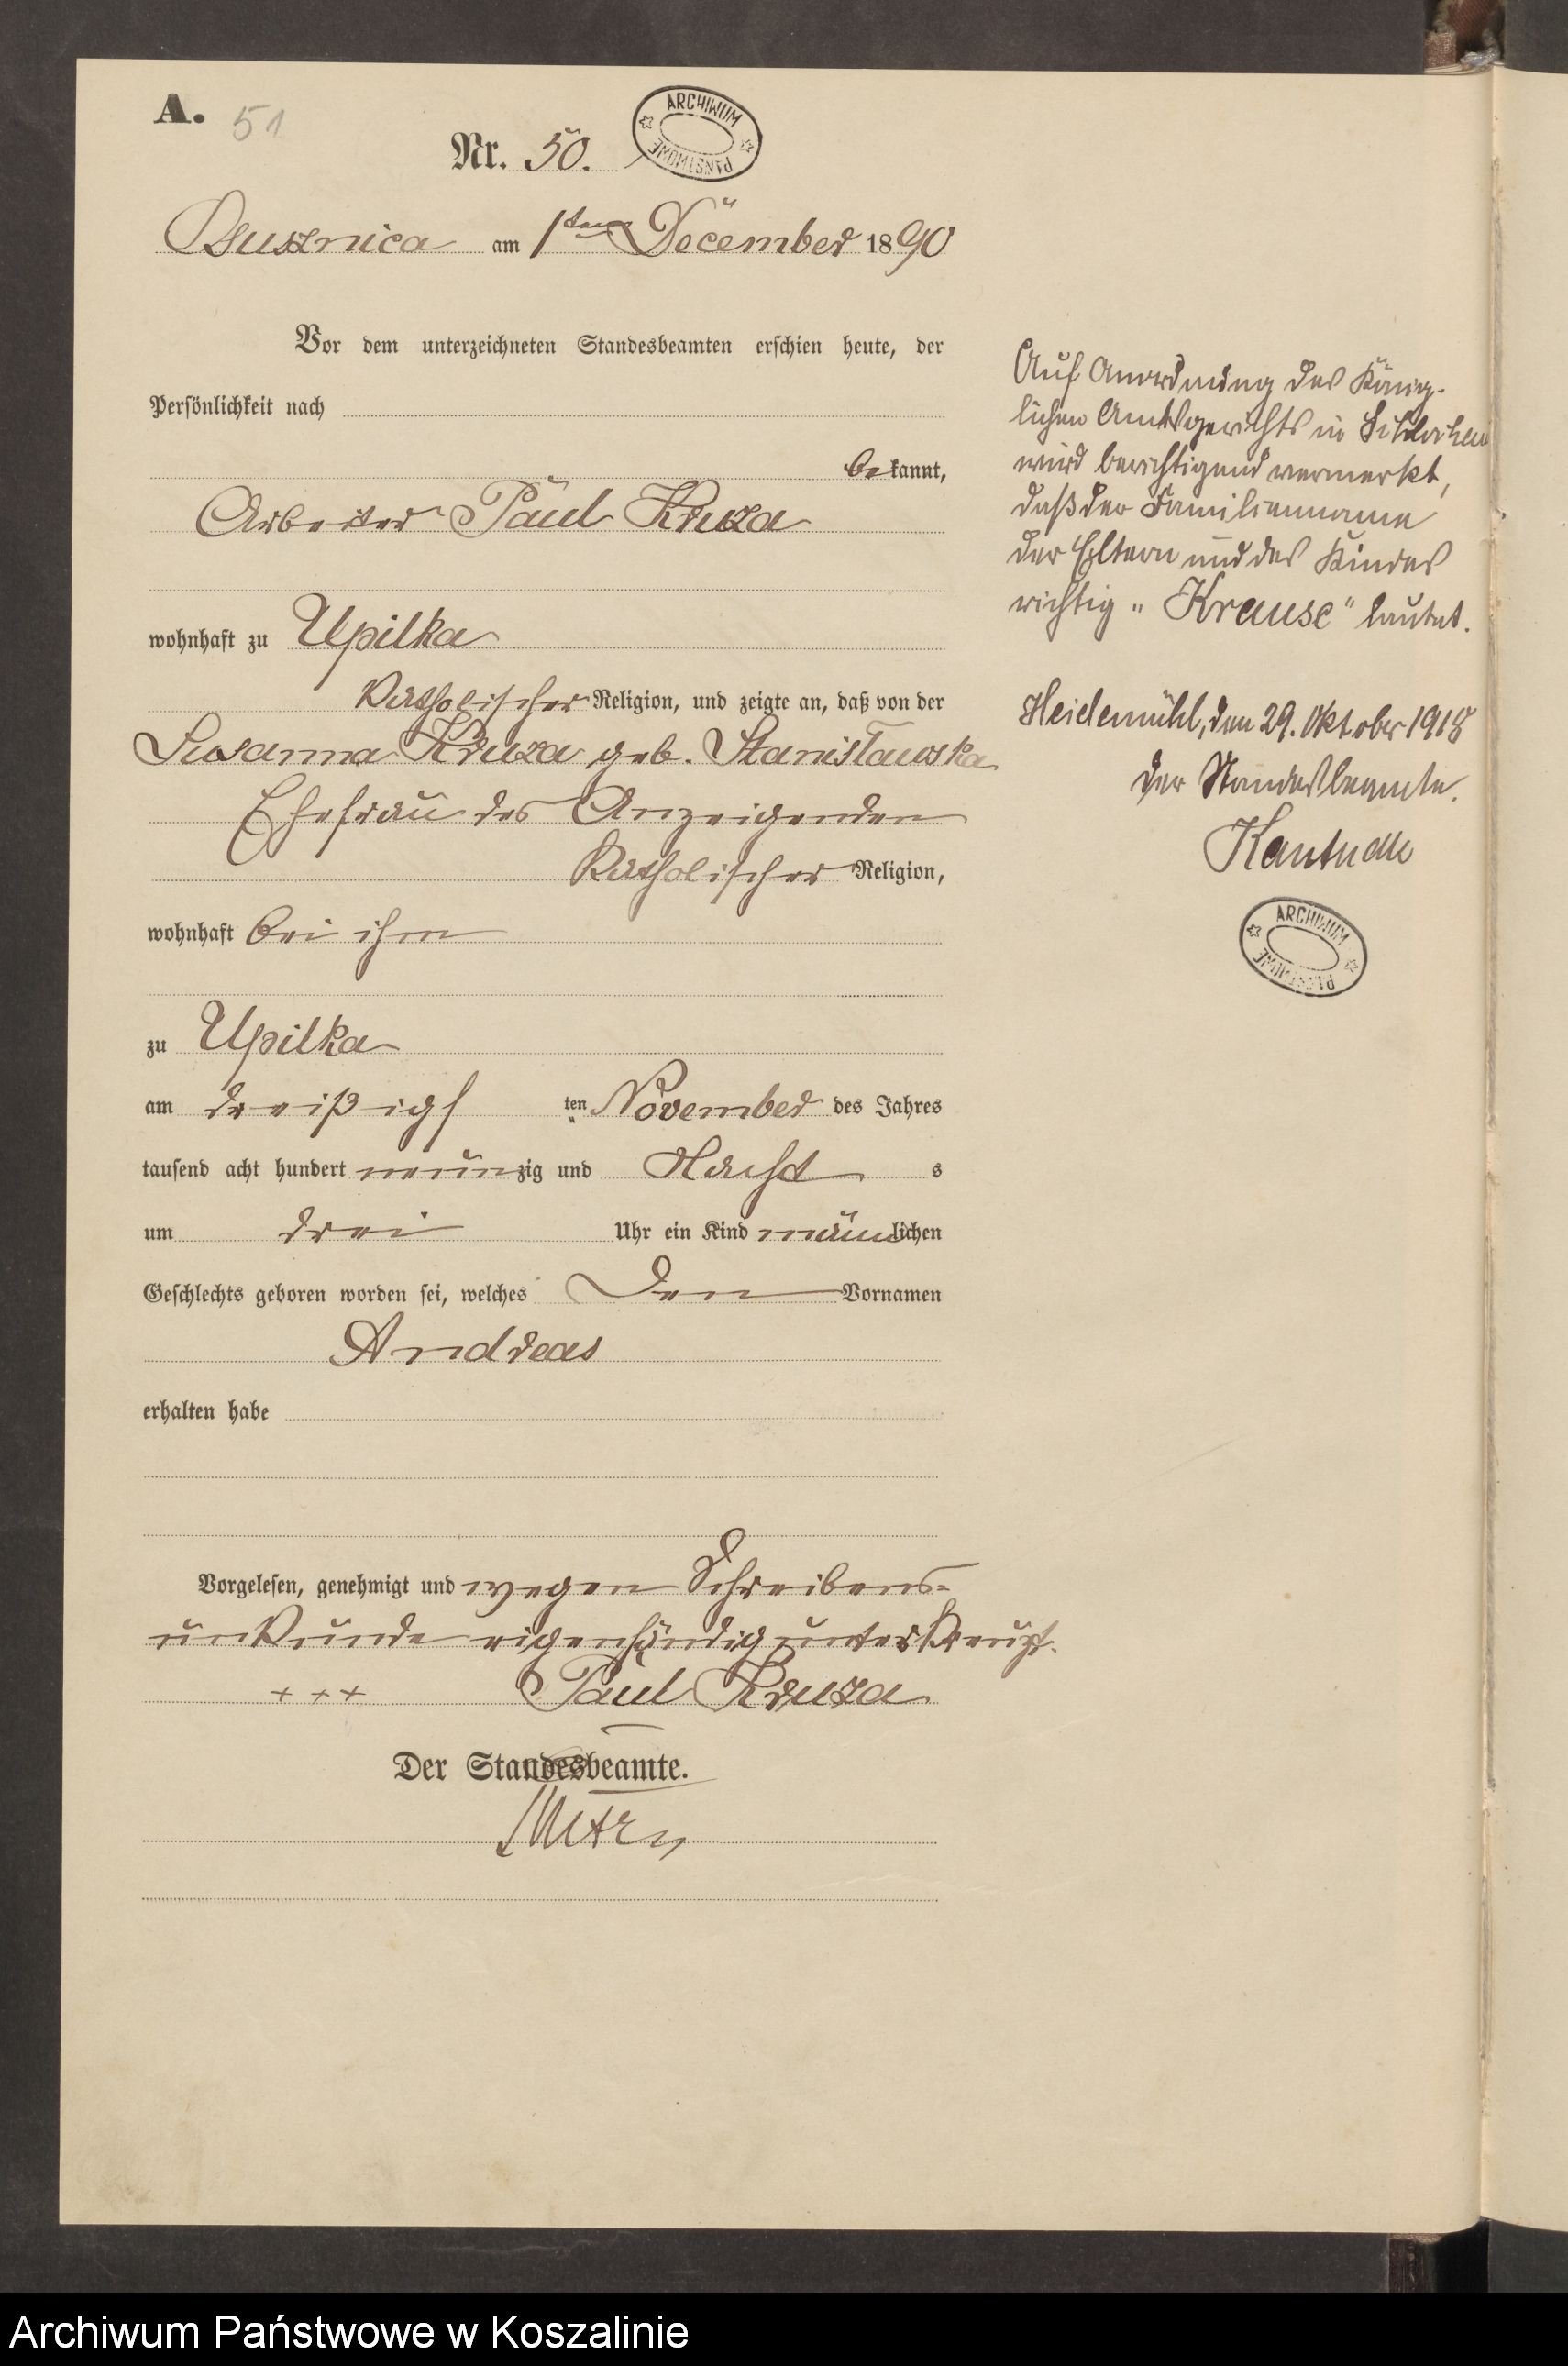 A. 51
Nr. 50.
ARCHIWUM PAŃSTWOWE
am 1ten December 1890
Vor dem unterzeichneten Standesbeamten erschien heute, der
Persönlichkeit nach
bekannt,
Arbeiter Paul Kruza
wohnhaft zu Upilka
katholischer Religion, und zeigte an, daß von der
Susanna Kruza geb. Stanisławska
Ehefrau des Anzeigenden
katholischer Religion,
wohnhaft bei ihm
zu Upilka
am dreißigsten November des Jahres
tausend acht hundert neunzig und Nachts
um drei Uhr ein Kind männlichen
Geschlechts geboren worden sei, welches den Vornamen
Andreas
erhalten habe
Vorgelesen, genehmigt und wegen Schreibens-
unkunde eigenhändig unterkreuzt.
+++ Paul Kruza
Der Standesbeamte.
Auf Anordnung des König-
lichen Amtsgerichts in Schlochau
wird berichtigend vermerkt,
daß der Familienname
der Eltern und des Kindes
richtig „Krause" lautet.
Heidemühl, den 29. Oktober 1918
Der Standesbeamte.
ARCHIWUM PAŃSTWOWE
Archiwum Państwowe w Koszalinie